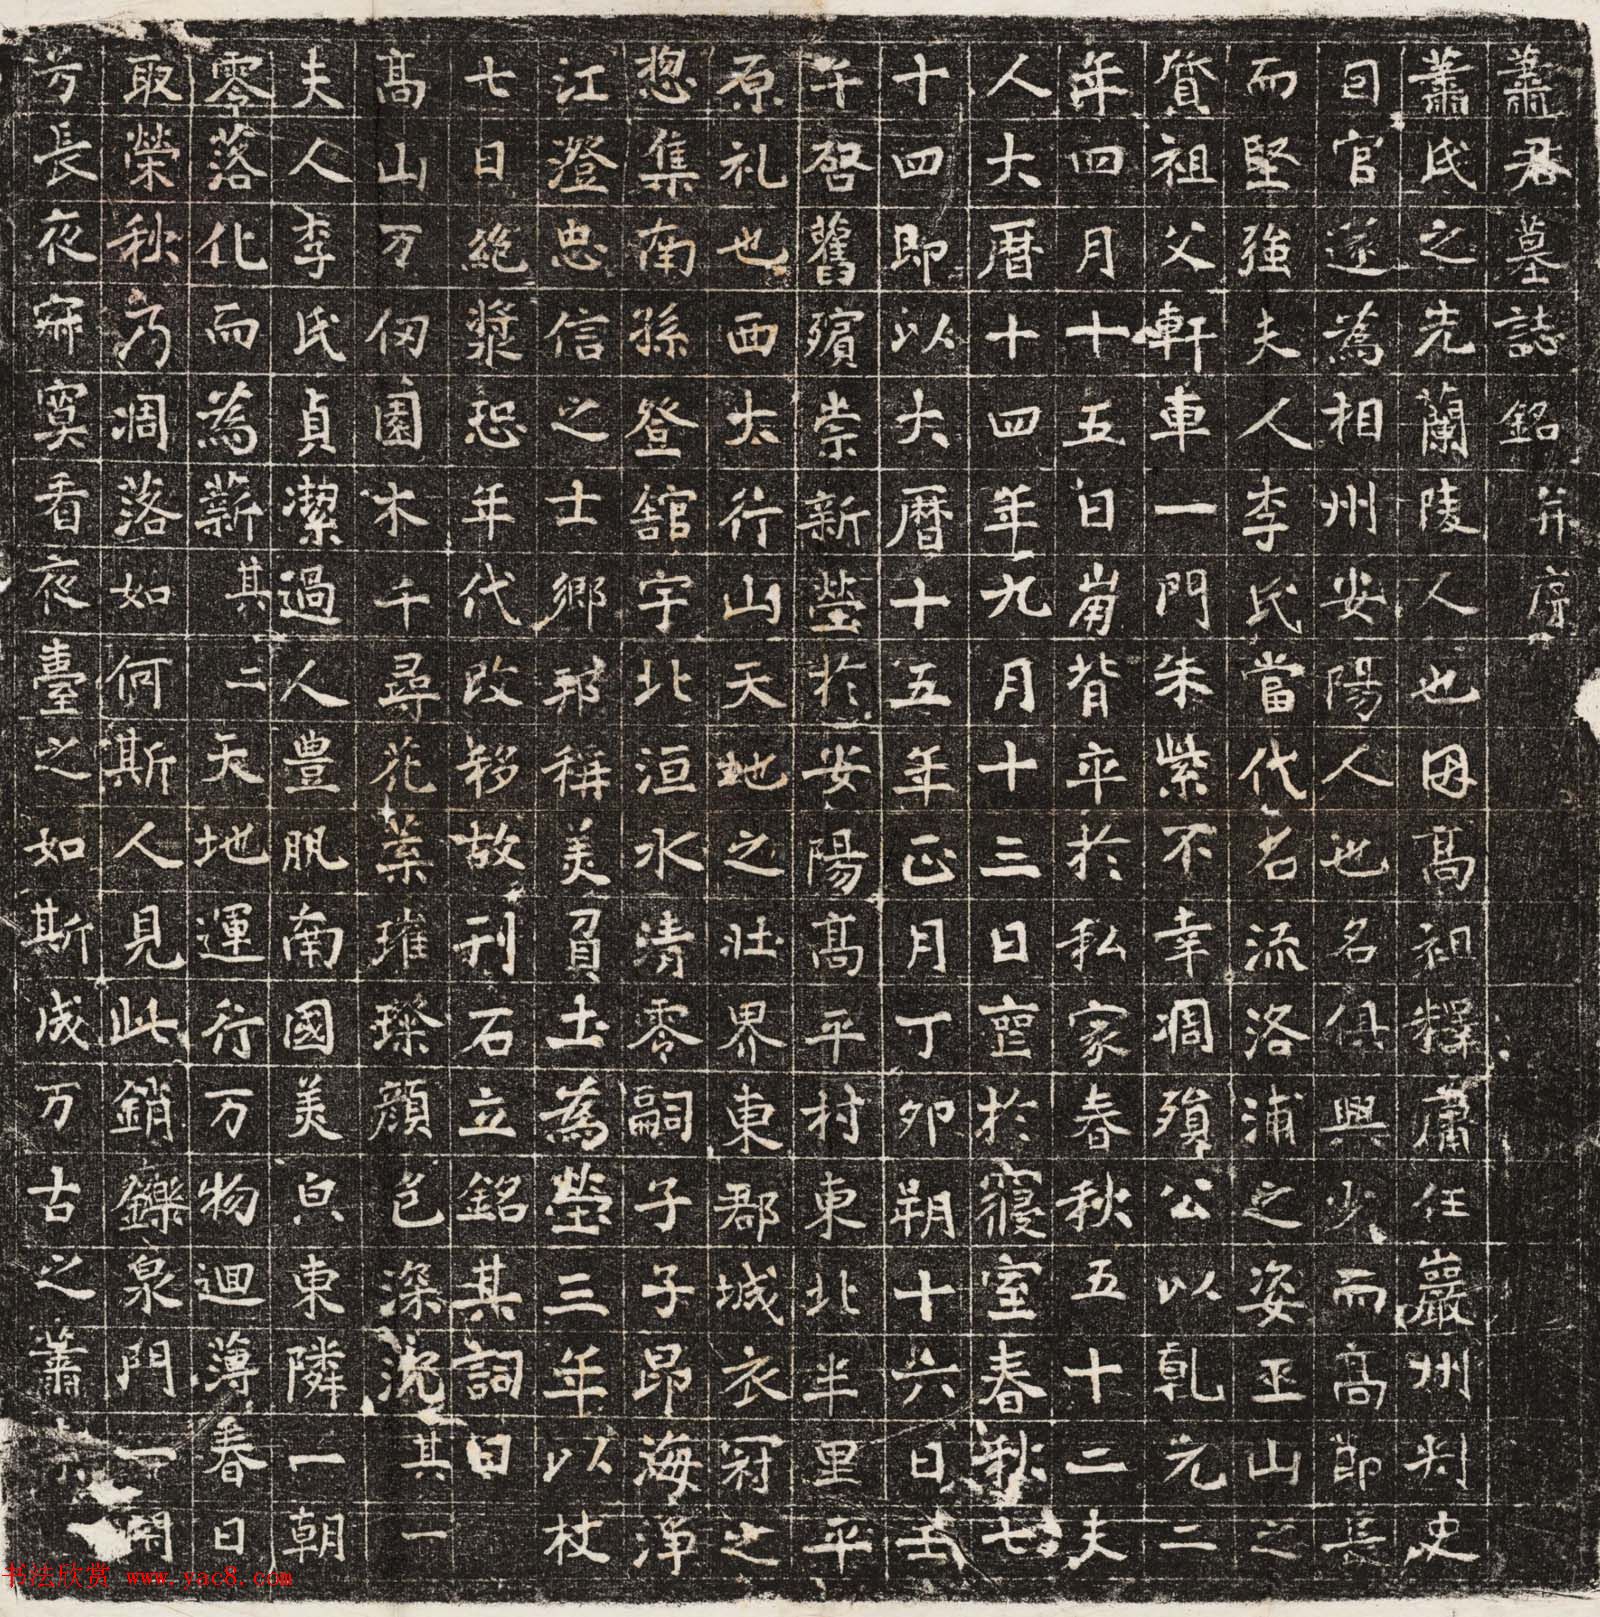 蕭君墓誌銘并序
蕭氏之先蘭陵人也因高祖釋肅任巖州刾史
因官遂為相州安陽人也名俱興少而高節長
而堅強夫人李氏當代名流洛浦之姿巫山之
質祖父軒車一門朱紫不幸凋殞公以乹元二
年四月十五日崗背卒於私家春秋五十二夫
人大曆十四年九月十三日薨於寢室春秋七
十四即以大曆十五年正月丁卯朔十六日壬
午啓舊殯崇新塋於安陽高平村東北半里平
原礼也西太行山天地之壯界東郡城衣冠之
惣集南孫登舘宇北洹水清零嗣子子昂海淨
江澄忠信之士鄉邦稱美負土為塋三年以杖
七日絕漿恐年代改移故刊石立銘其詞曰
高山万仞園木千尋花葉璀璨顏色深沉其一
夫人李氏貞潔過人豊肌南國美皃東隣一朝
零落化而為薪其二天地運行万物迴薄春日
取榮秋乃凋落如何斯人見此銷鑠泉門一閇
芳長夜寂寞看夜臺之如斯成万古之蕭
书法欣赏 www.yac8.com